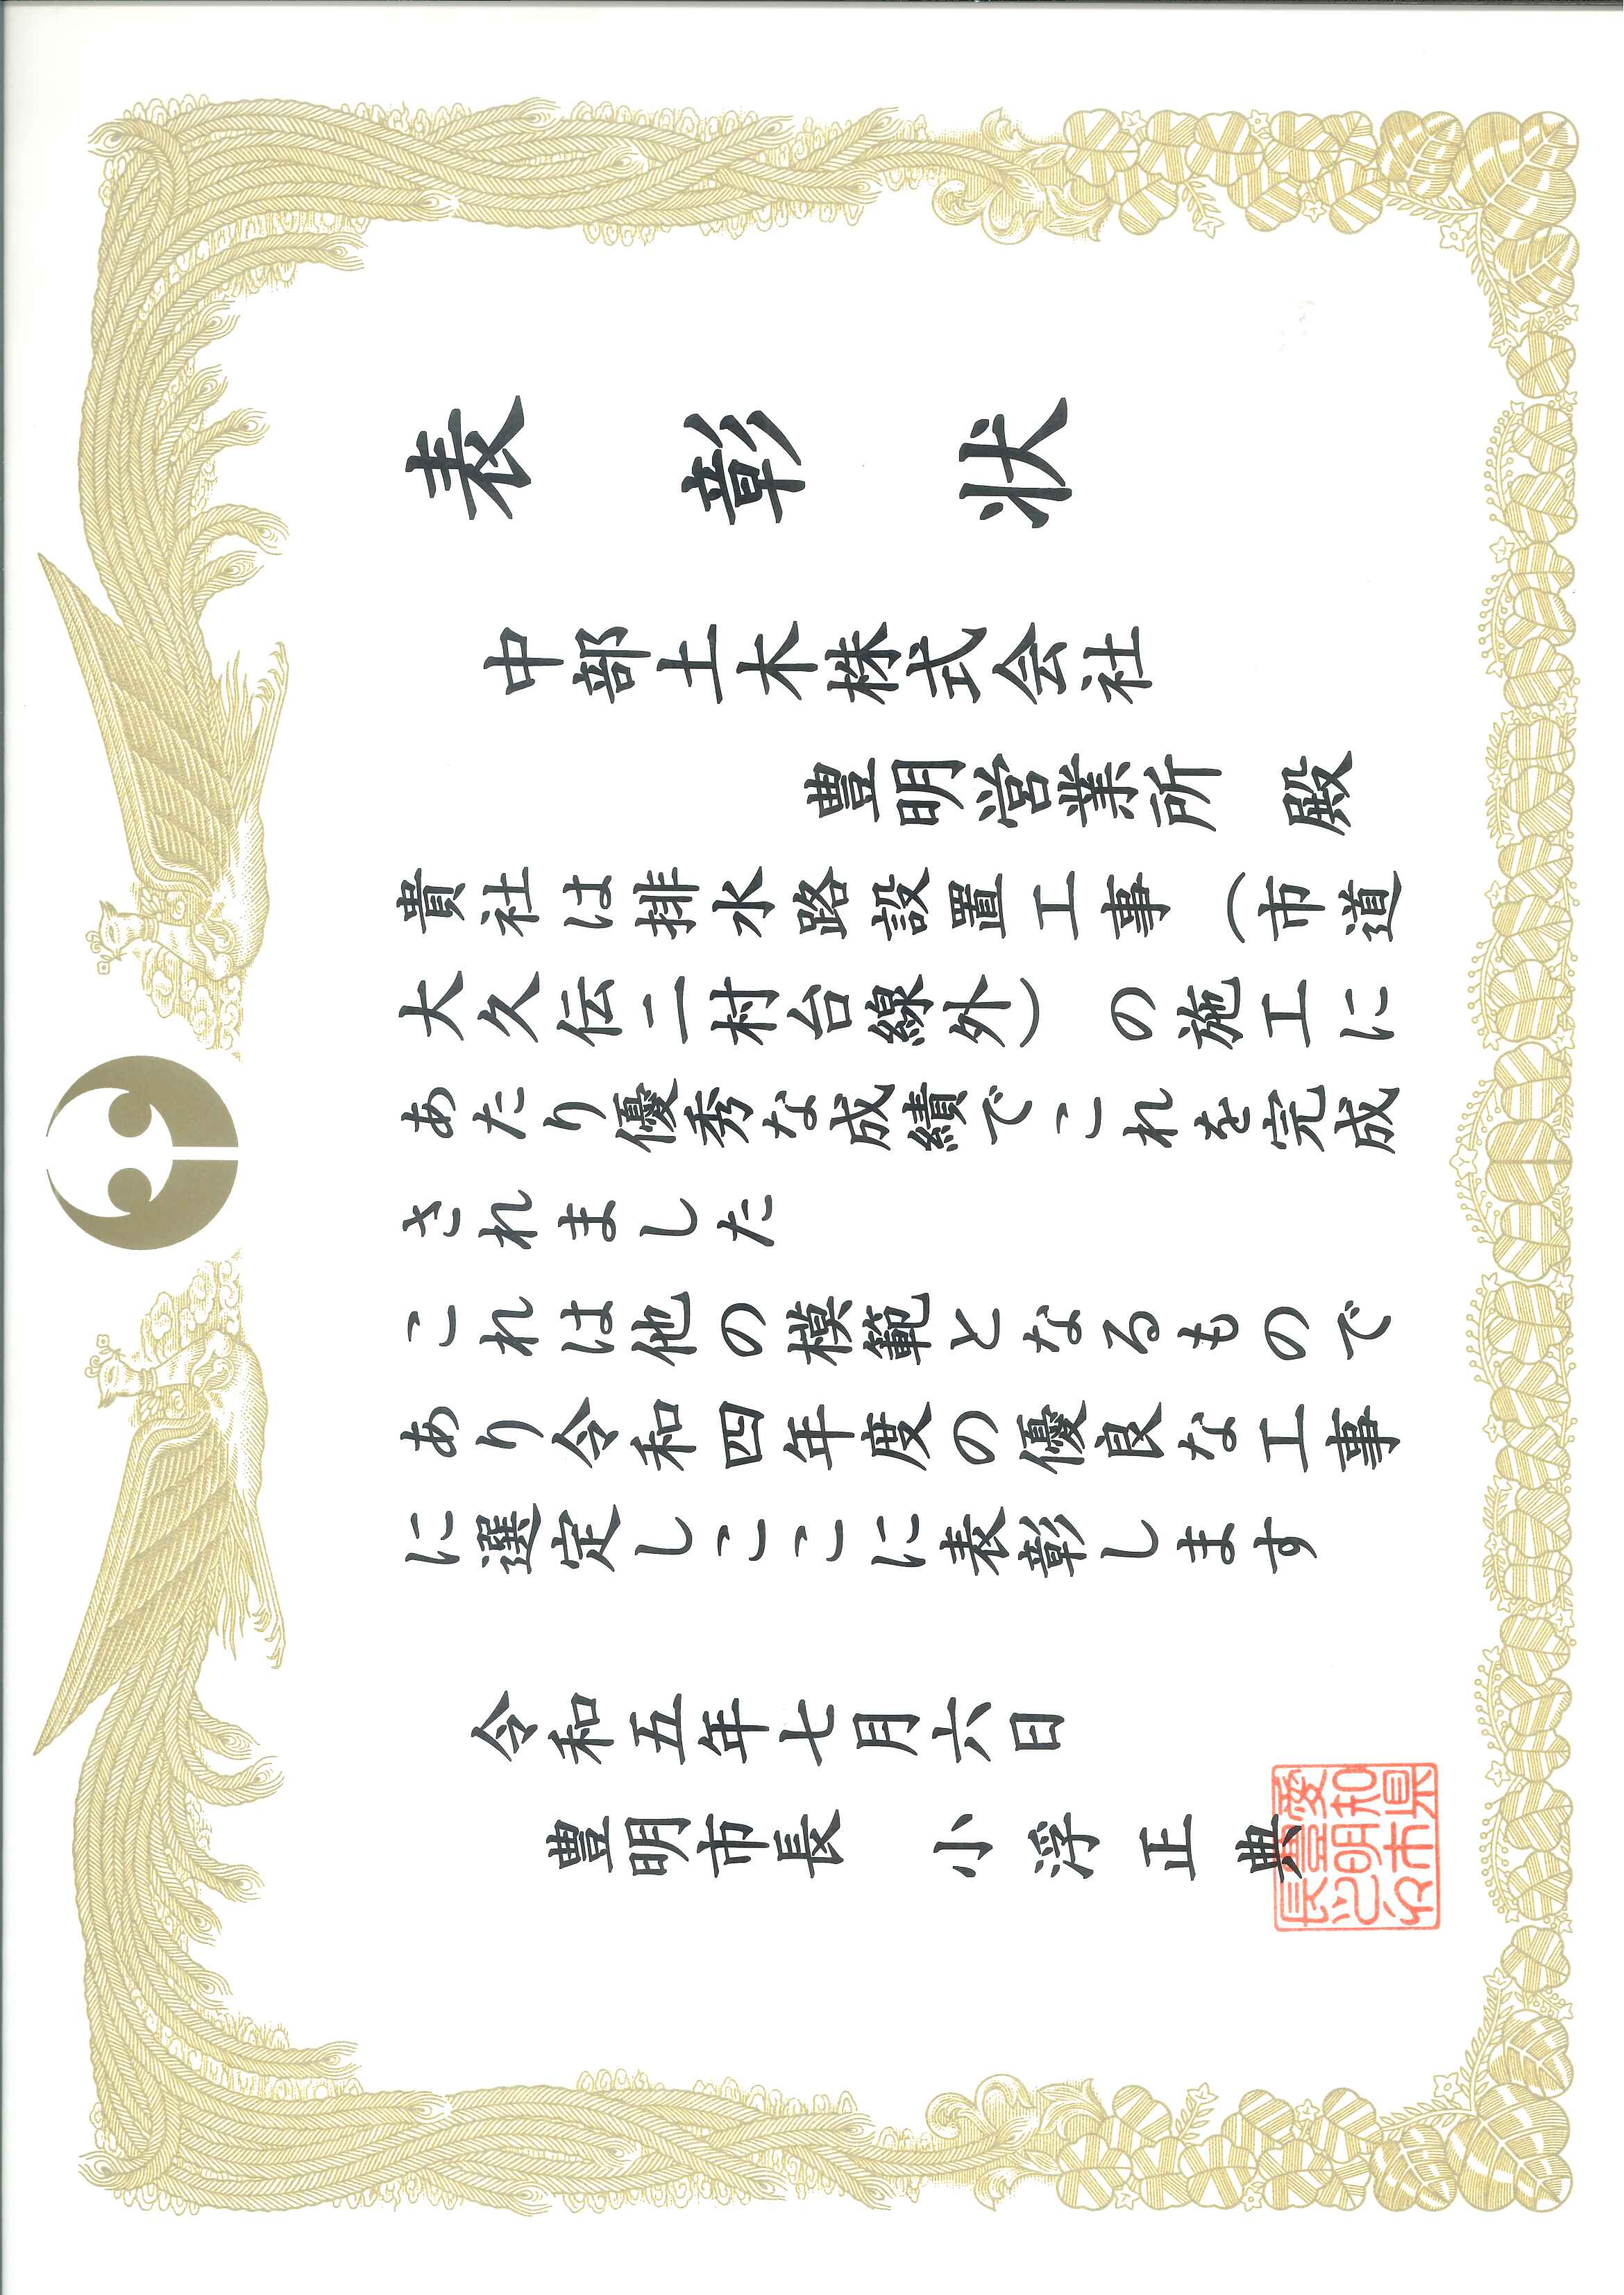 表彰状
中部土木株式会社
豊明営業所 殿
貴社は排水路設置工事（市道
大久伝二村台線外）の施工に
あたり優秀な成績でこれを完成
されました
これは他の模範となるもので
あり令和四年度の優良な工事
に選定しここに表彰します
令和五年七月六日
豊明市長 小浮正典
愛知県
豊明市
長之印